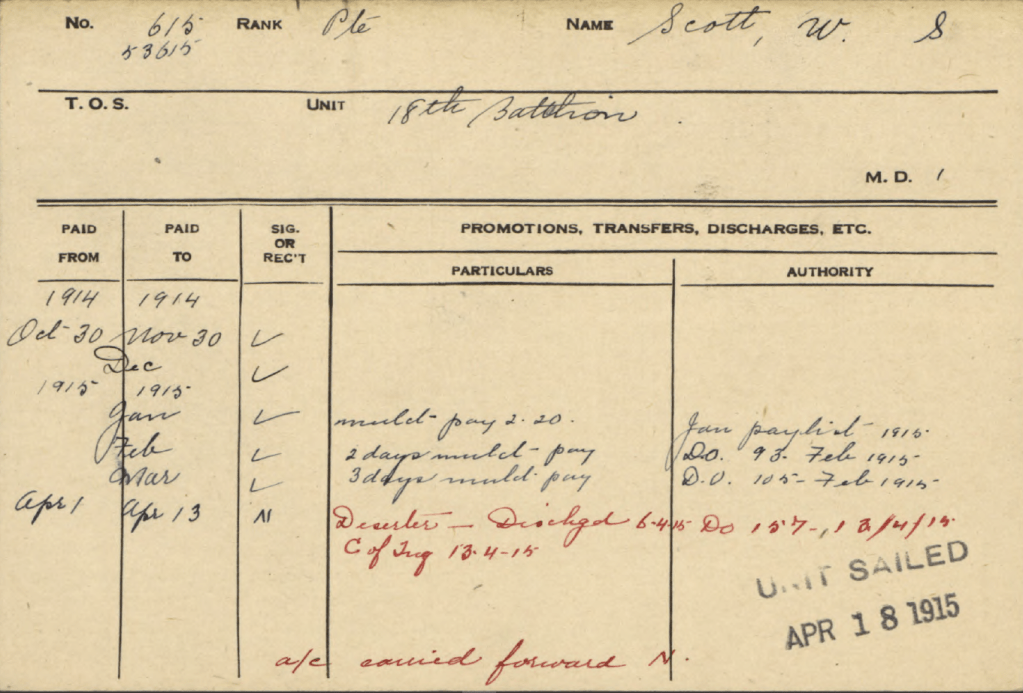 No. 615 RANK Pte NAME Scott, W. S
53615
T. O. S. UNIT 18th Battalion
M. D. 1
PAID FROM PAID TO SIG. OR REC'T PROMOTIONS, TRANSFERS, DISCHARGES, ETC.
PARTICULARS AUTHORITY
1914 1914
Oct 30 Nov 30 ✓
Dec ✓
1915 1915
Jan ✓ mulct pay 2.20. Jan paylist 1915
Feb ✓ 2 days mulct pay D.O. 93- Feb 1915
Mar ✓ 3 days mulct pay D.O. 105- Feb 1915
Apr 1 Apr 13 N Deserter — Dischgd 6-4-15 Do 157-, 13/4/15
C of Inq 13-4-15
UNIT SAILED
APR 18 1915
a/c carried forward N.